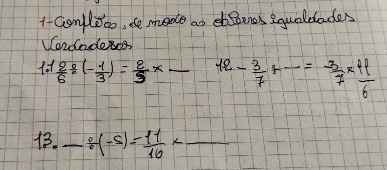 1-Conflões, de modo as obteres igualdades
Verdadeiras
1.1 2/6 ÷ (-1/3) = 2/5 × __ 12 - 3/7 ÷ __ = 3/7 × 11/6
13. __ ÷ (-5) = 11/16 × __